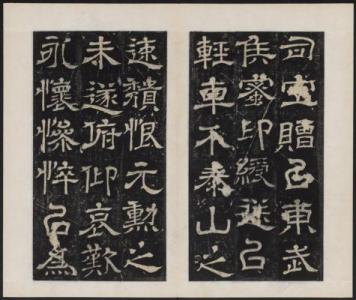 司空贈以東武
侯蜜印綬送以
輕車不泰山之
速穨恨元勳之
未遂俯仰哀歎
永懷慘悴以爲